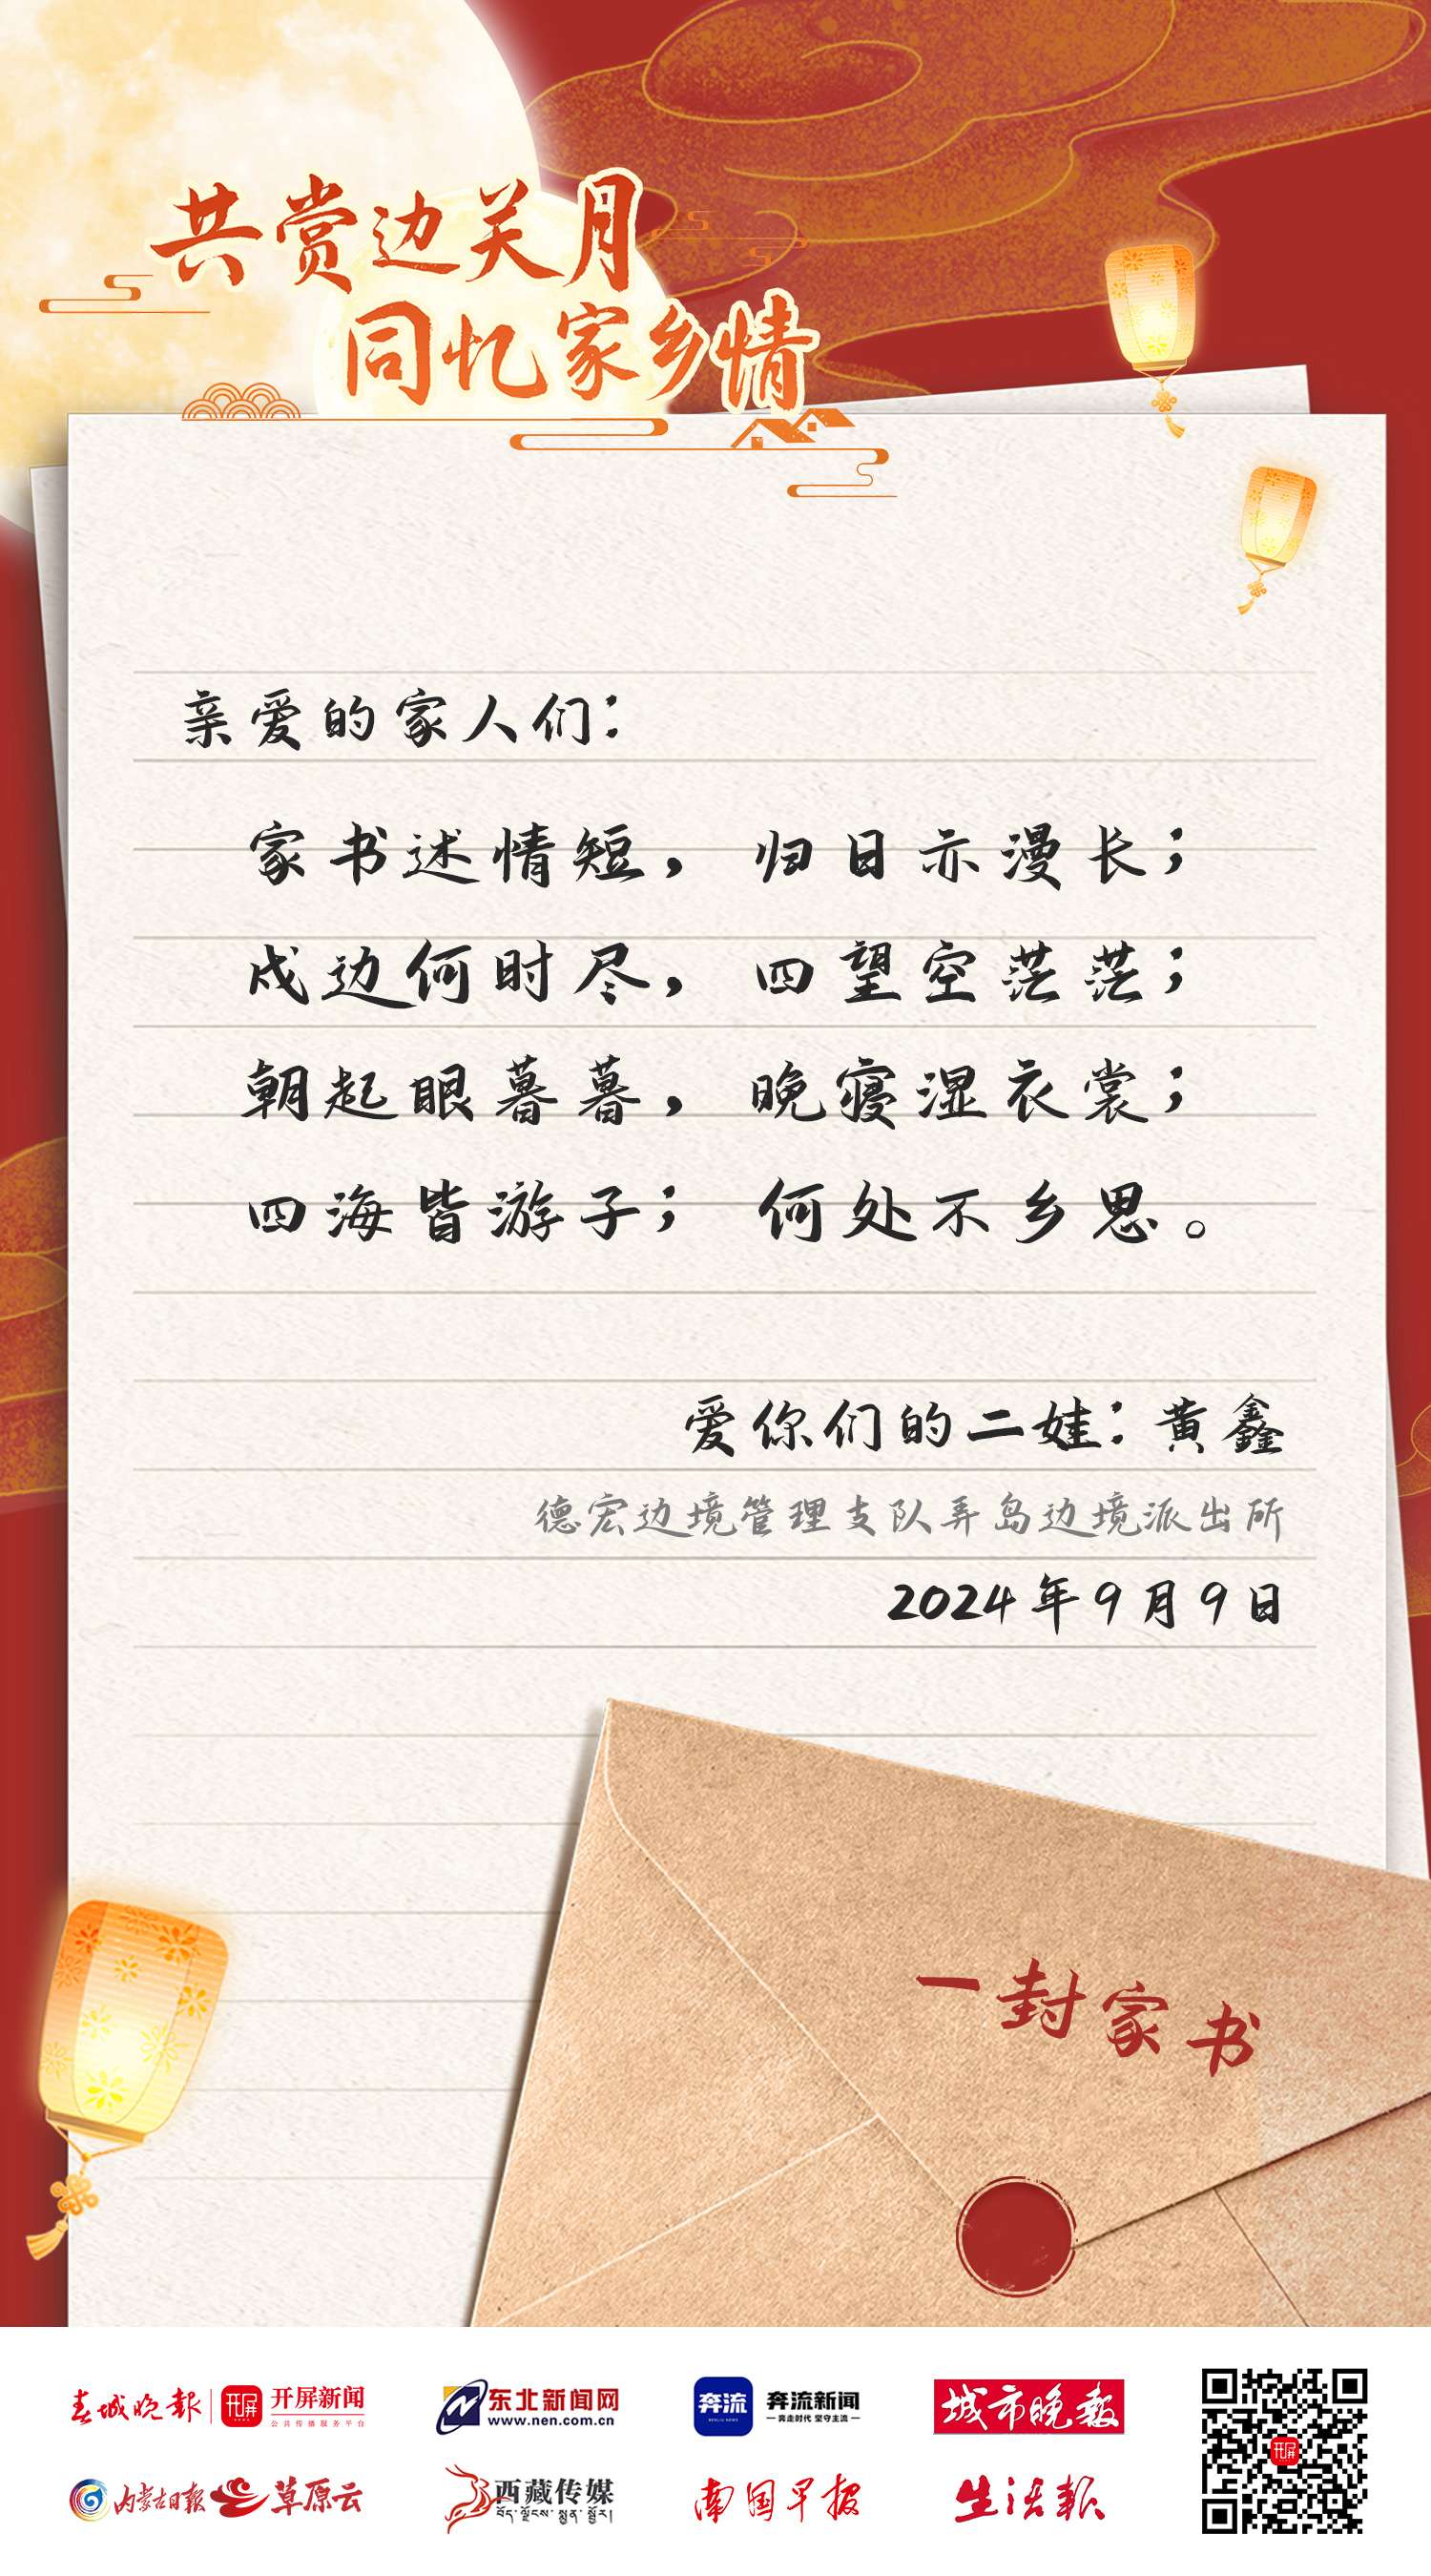 共赏边关月
同忆家乡情
亲爱的家人们：
家书述情短，归日亦漫长；
戍边何时尽，四望空茫茫；
朝起眼暮暮，晚寝湿衣裳；
四海皆游子；何处不乡思。
爱你们的二娃：黄鑫
德宏边境管理支队弄岛边境派出所
2024年9月9日
一封家书
春城晚报 开屏 开屏新闻
公共传播服务平台
东北新闻网
www.nen.com.cn
奔流 奔流新闻
奔走时代 坚守主流
城市晚报
开屏
内蒙古日报 草原云
西藏传媒
南国早报
生活报